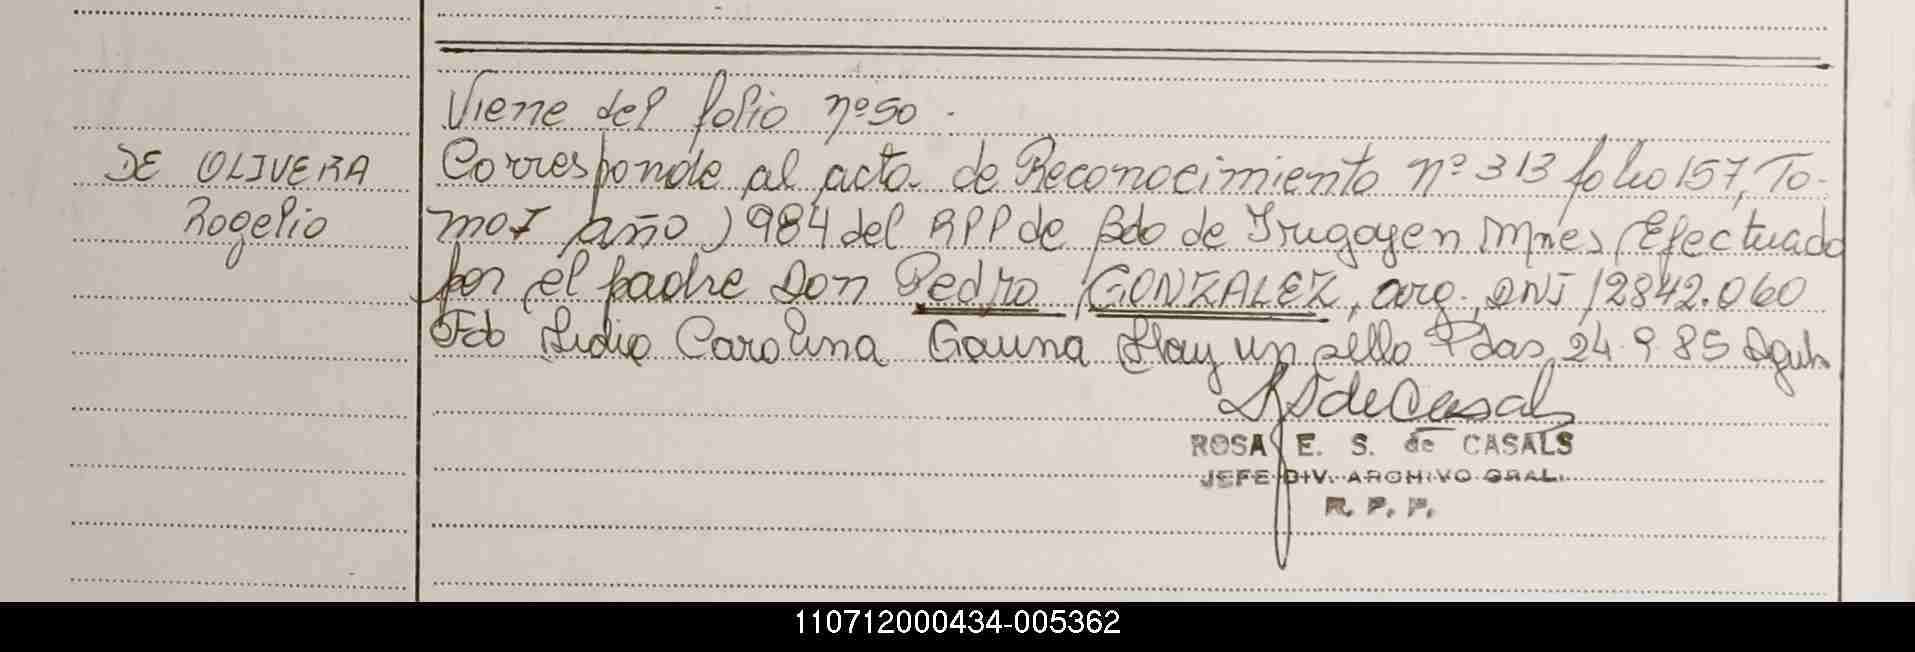 Viene del folio nº50.
DE OLIVERA
Rogelio
Corresponde al acta de Reconocimiento nº 313 folio 157, To-
mo I año 1984 del RPP de Bdo de Irugoyen Mnes, Efectuado
por el padre Don Pedro GONZALEZ, arg. DNI 12842.060
Fdo Lidia Carolina Gauna Hay un sello Pdas, 24.9.85
ROSA E. S. de CASALS
JEFE DIV. ARCHIVO GRAL.
R. P. P.
110712000434-005362